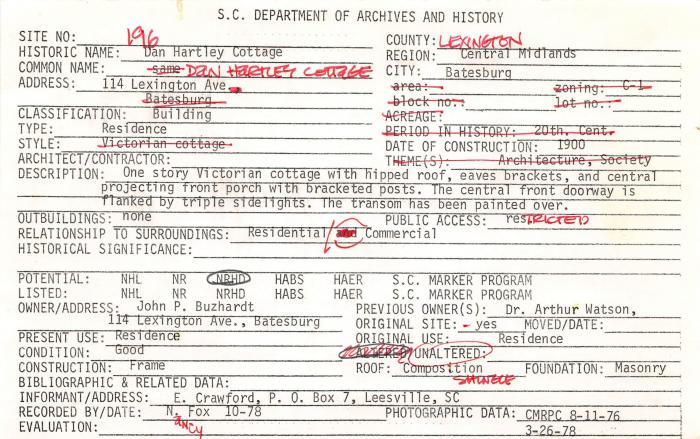 S.C. DEPARTMENT OF ARCHIVES AND HISTORY
SITE NO: 196
COUNTY: LEXINGTON
HISTORIC NAME: Dan Hartley Cottage
REGION: Central Midlands
COMMON NAME: same DAN HARTLEY COTTAGE
CITY: Batesburg
ADDRESS: 114 Lexington Ave.
area: zoning: C-1
Batesburg
block no: lot no.:
CLASSIFICATION: Building
ACREAGE:
TYPE: Residence
PERIOD IN HISTORY: 20th. Cent.
STYLE: Victorian cottage
DATE OF CONSTRUCTION: 1900
ARCHITECT/CONTRACTOR:
THEME(S): Architecture, Society
DESCRIPTION: One story Victorian cottage with hipped roof, eaves brackets, and central
projecting front porch with bracketed posts. The central front doorway is
flanked by triple sidelights. The transom has been painted over.
OUTBUILDINGS: none
PUBLIC ACCESS: resTRICTED
RELATIONSHIP TO SURROUNDINGS: Residential / and Commercial
HISTORICAL SIGNIFICANCE:
POTENTIAL: NHL NR NRHD HABS HAER S.C. MARKER PROGRAM
LISTED: NHL NR NRHD HABS HAER S.C. MARKER PROGRAM
OWNER/ADDRESS: John P. Buzhardt
PREVIOUS OWNER(S): Dr. Arthur Watson,
114 Lexington Ave., Batesburg
ORIGINAL SITE: - yes MOVED/DATE:
PRESENT USE: Residence
ORIGINAL USE: Residence
CONDITION: Good
ALTERED/UNALTERED:
CONSTRUCTION: Frame
ROOF: Composition SHINGLE FOUNDATION: Masonry
BIBLIOGRAPHIC & RELATED DATA:
INFORMANT/ADDRESS: E. Crawford, P. O. Box 7, Leesville, SC
RECORDED BY/DATE: N. ANCY Fox 10-78
PHOTOGRAPHIC DATA: CMRPC 8-11-76
EVALUATION:
3-26-78